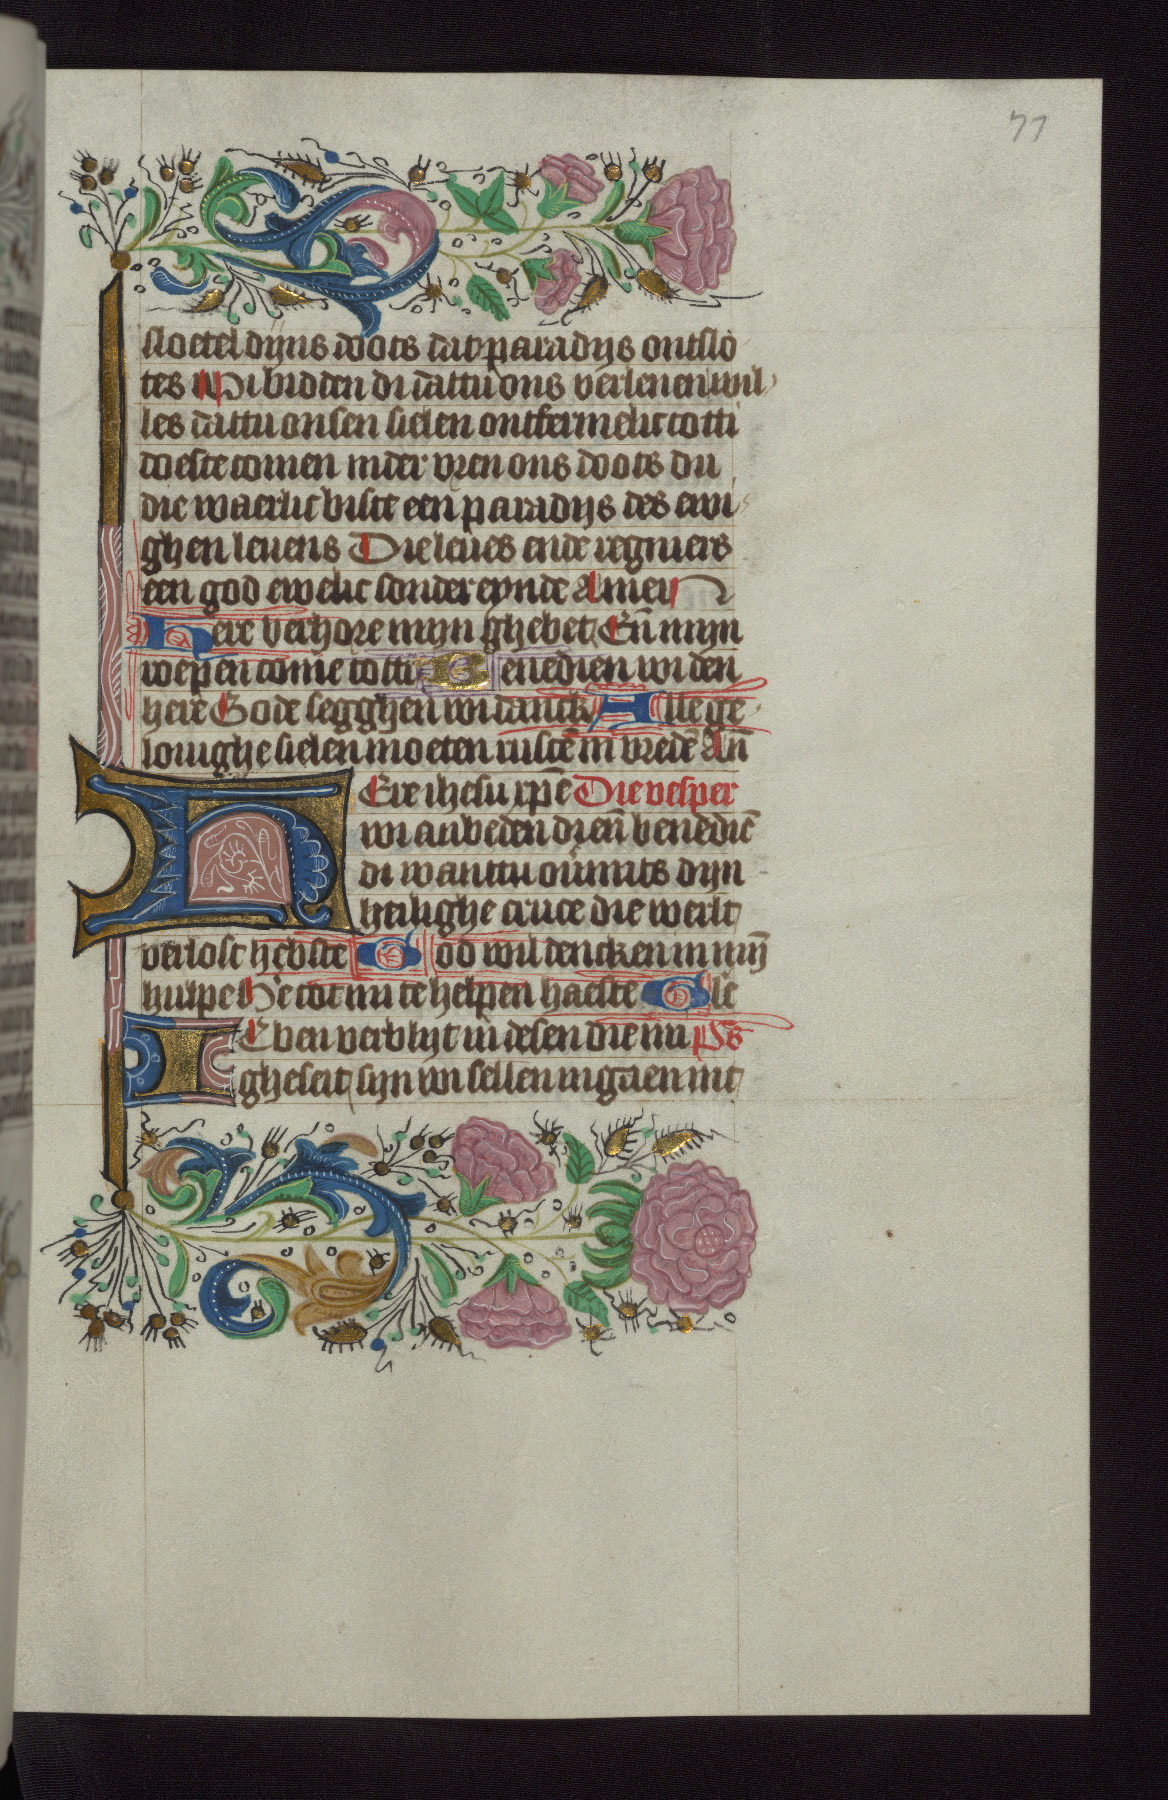 77
sloetel dijns doots dat paradijs ontslo
tes Wi bidden di dattu ons verlenen wil
les dattu onsen sielen ontfermelic totti
doeste comen inder vren ons doots du
die waerlic biste een paradijs des ewi
ghen levens Die leues ende regniers
een god ewelic sonder eynde Amen
Here verhore mijn ghebet Eñ mijn
wepen come totti Benedien wi den
here Gode segghen wi danck Alle ge
louighe sielen moeten rustē in vredē Am̄
HEre ihesu xpē Die vesper
wi anbeden di eñ benediē
di wanttu ouermits dijn
heilighe cruce die werlt
verlost hebste God wil dencken in mijn̄
hulpe He tot mi te helpen haeste Gle
Ic ben verblijt in desen die mi Ps
gheseit sijn wi sellen ingaen int